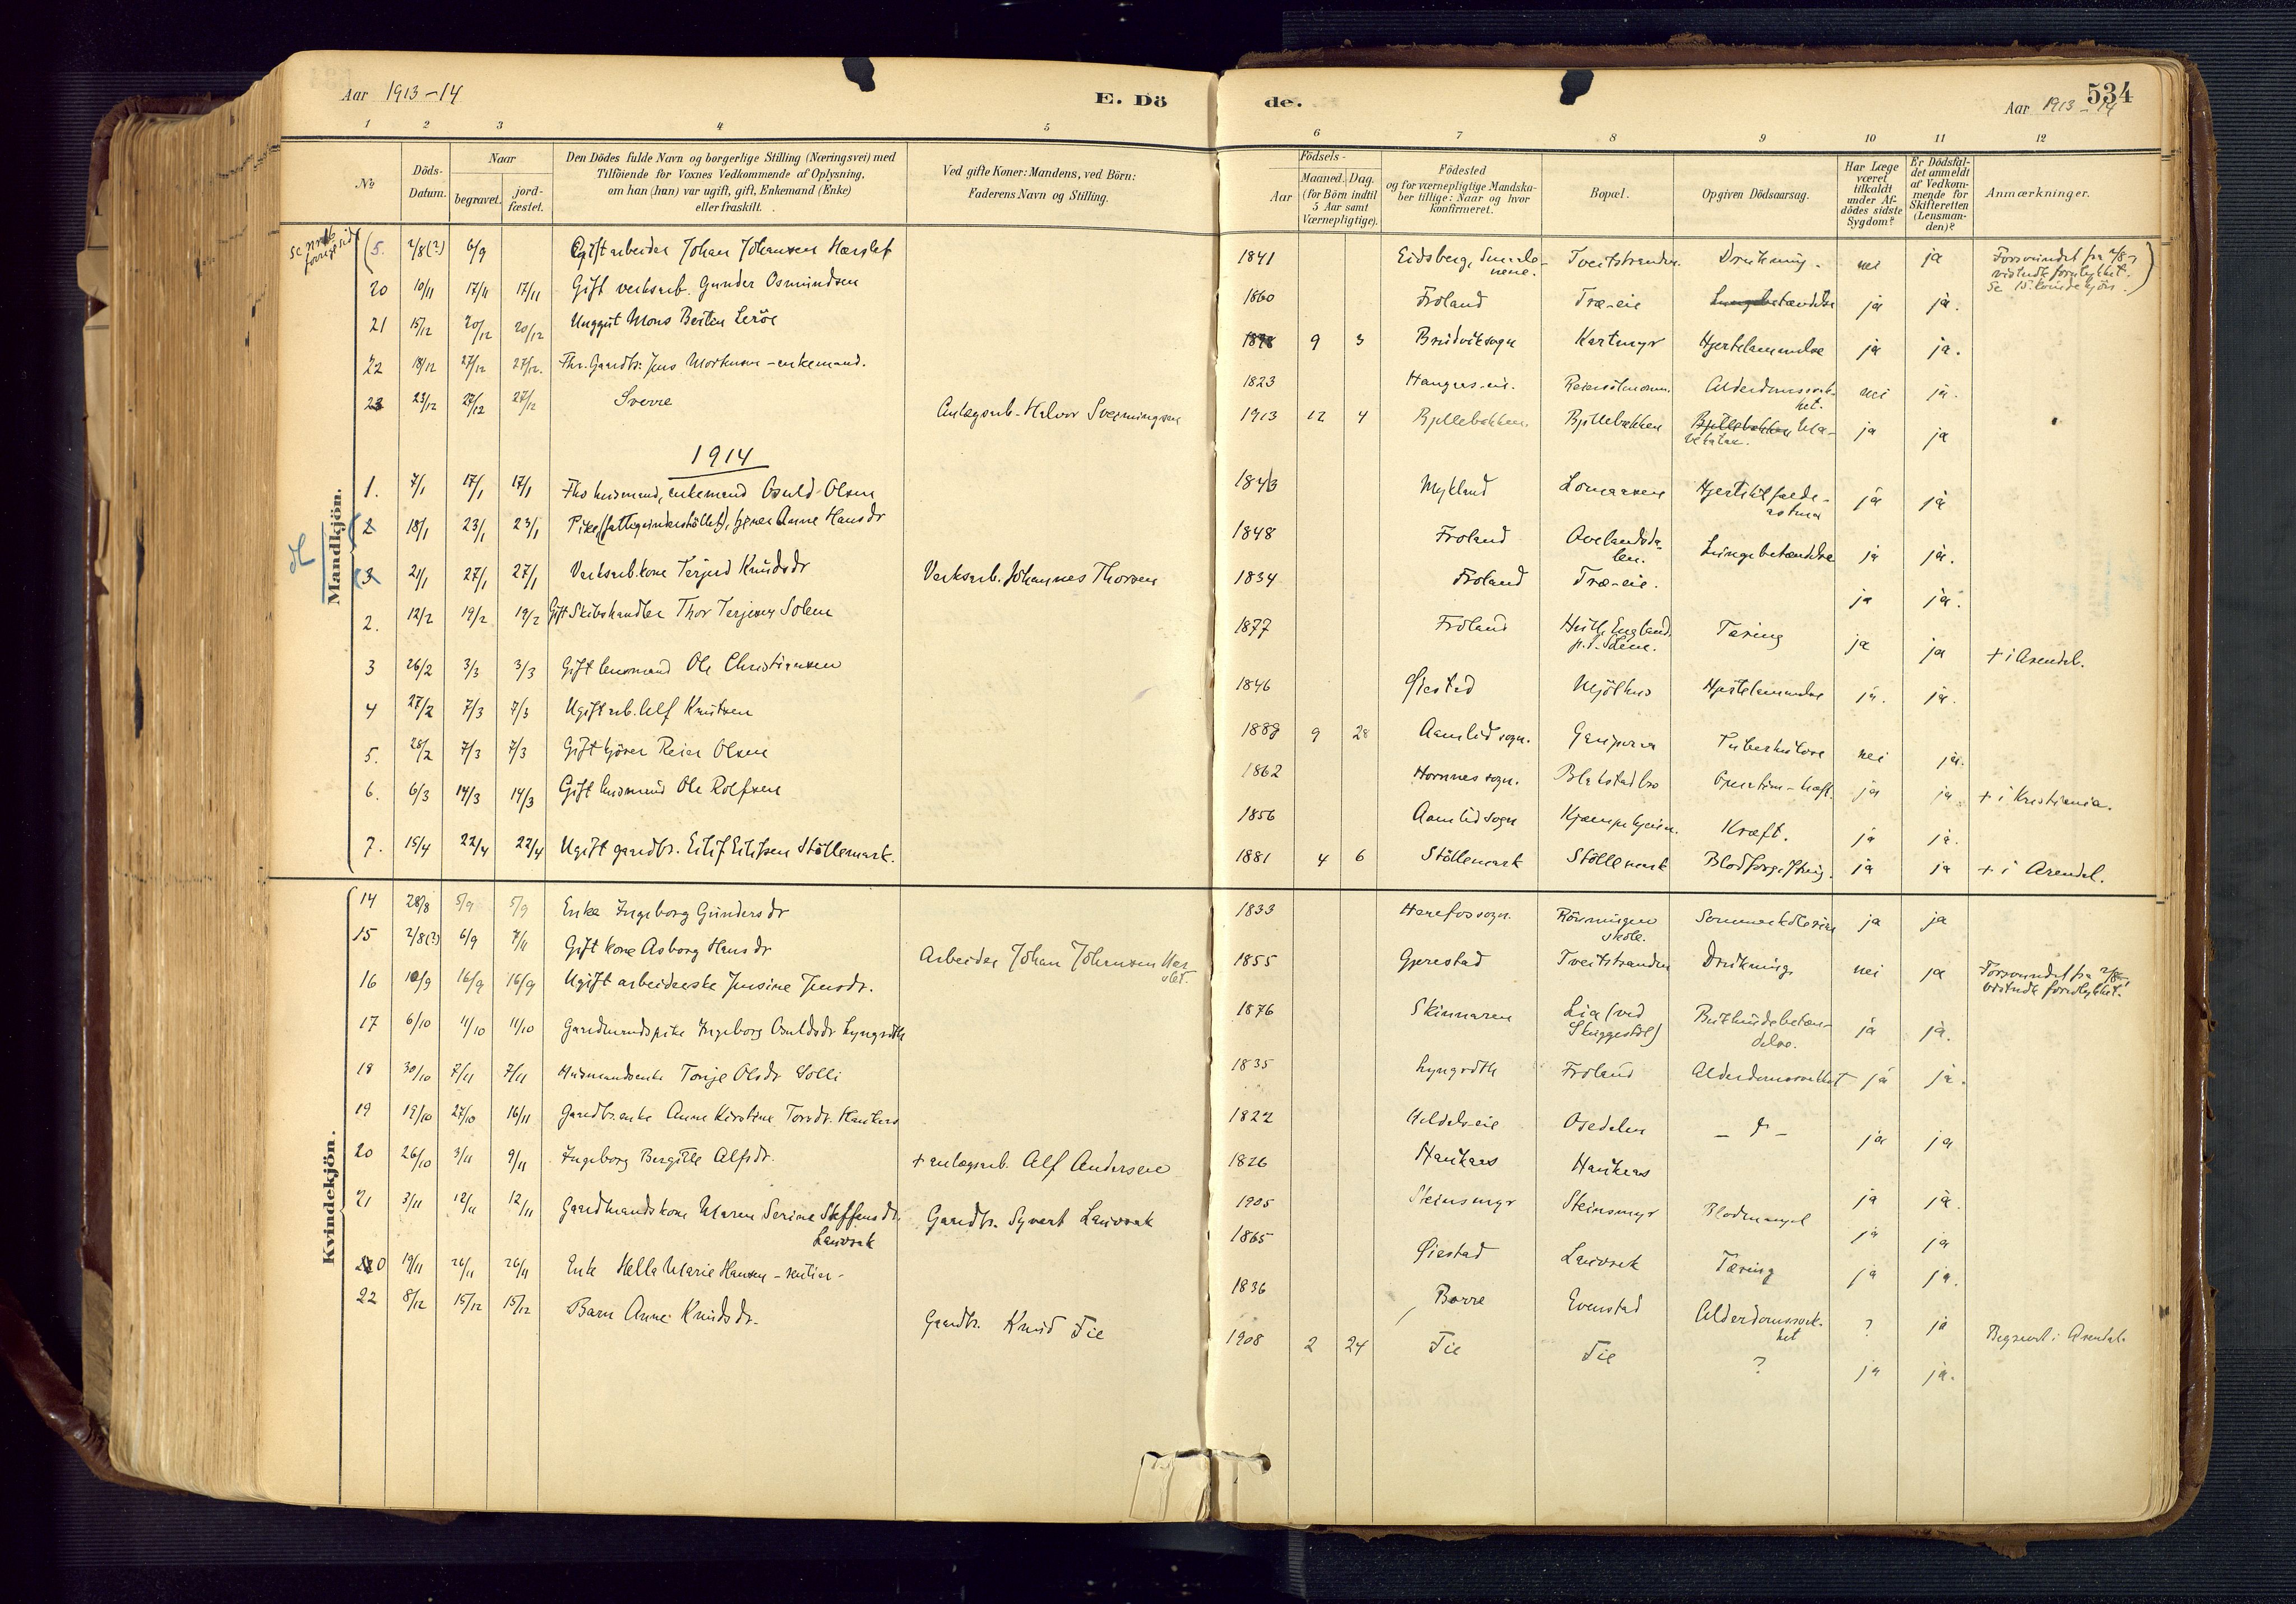 Aar 1913-14
E. Dö
de.
534
Aar 1913-14
1 2 3 4 5 6 7 8 9 10 11 12
No
Döds-Datum.
Naar
begravet.
jord-fæstet.
Den Dödes fulde Navn og borgerlige Stilling (Næringsvei) med
Tilföiende for Voxnes Vedkommende af Oplysning,
om han (hun) var ugift, gift, Enkemand (Enke)
eller fraskilt.
Ved gifte Koner: Mandens, ved Börn:
Faderens Navn og Stilling.
Födsels-
Aar
Maaned. Dag.
(for Börn indtil
5 Aar samt
Værnepligtige).
Födested
og for værnepligtige Mandska-
ber tillige: Naar og hvor
konfirmeret.
Bopæl.
Opgiven Dödsaarsag.
Har Læge
været
tilkaldt
under Af-
dödes sidste
Sygdom?
Er Dödsfal-
det anmeldt
af Vedkom-
mende for
Skifteretten
(Lensman-
den)?
Anmærkninger.
Mandkjön.
(5. 2/8(?) 6/9 Gift arbeider Johan Johansen Hærslet 1841 Eidsberg, Smaale-nene. Tveitstranden. Drukning. nei ja Forsvundet fra 2/8, vistnok forulykket. Se 15 kvindekjön.)
20 10/11 17/11 17/11 Gift verksarb. Gunder Osmundsen 1860 Froland Træ-eie ja ja.
21 15/12 20/12 20/12 Unggut Mons Berten Leröe 9 3 Bruvik sogn Kartmyr Hjertelammelse ja ja.
22 18/12 27/12 27/12. Fhv. Gaardbr: Jens Mortensen - enkemand. 1823 Alderdomssvak-het. nei ja.
23 23/12 27/12 27/12 Sverre Anlægsarb. Halvor Sveinungsen 1913 12 4 Bjellebakken. Bjellebakken ja ja
1914
1. 7/1 17/1 17/1 Fhv husmand, enkemand Osuld Olsen Mykland Lomaasen ja ja
2 18/1 23/1 23/1 Pike (fattigunderstöttet), Anne Hansdr 1848 Froland Lungebetændelse ja ja.
3 21/1 27/1 27/1 Verksarb.kone Terjerd Knudsdr Verksarb. Johannes Thorsen 1834 Froland Træ-eie. ja ja.
2. 12/2 19/2 19/2 Gift Skibshandler Thor Terjesen Solem 1877 Froland Hull, England, Tæring ja ja + i Arendal.
3 26/2 3/3 3/3 Gift husmand Ole Christiansen 1846 Øiestad Mjölhus Hjertelammelse ja. ja.
4 27/2 7/3 7/3 Ugift arb. Alf Knutsen 1888 9 28 Aamlid sogn. Tuberkulose nei ja.
5. 28/2 7/3 7/3 Gift Reier Olsen 1862 Hornnes sogn. Blakstad bro ja ja + i Kristiania.
6. 6/3 14/3 14/3 Gift husmand Ole Rolfsen 1856 Aamlid sogn Kræft. ja ja.
7. 15/4 22/4 22/4 Ugift gaardbr. Eilif Eilifsen Stöllemark. 1881 4 6 Stöllemark Stöllemark Blodforgiftning. ja ja + i Arendal.
Kvindekjön.
14 28/8 5/9 5/9 Enke Ingeborg Gundersdr 1833 Herefos sogn. Rövningen skole. ja ja
15 2/8(?) 6/9 7/11 Gift kone Asborg Hansdr Arbeider Johan Johansen Hær-slet. 1855 Gjerestad Tveitstranden Drukning. nei ja Forsvundet fra 2/8, vistnok forulykket.
16 10/9 16/9 16/9 Ugift arbeiderske Jensine Jensdr. 1876 Skinnaren Lia (ved Skuggestöl) Bukhindebetæn-delse. ja ja.
17 6/10 11/10 11/10 Gaardmandspike Ingeborg Osuldsdr Lyngroth 1835 Lyngroth Froland Alderdomssvakhet ja ja.
18 30/10 7/11 7/11 Husmandsenke Torje Olsdr Solli 1822 Osedalen - do - ja ja
19 19/10 27/10 16/11 Gaardbr.enke Anne Kirstine Torsdr. Haukaas 1826 Haukaas Haukaas ja ja.
20 26/10 3/11 9/11 Ingeborg Bergitte Alfsdr. + anlægsarb. Alf Andersen 1905 Steinsmyr Steinsmyr Blodmangel ja ja
21 3/11 12/11 12/11 Gaardmandskone Maren Serine Steffensdr. Lauvrak Gaardbr. Syvert Lauvrak 1865 Øiestad Lauvrak Tæring ja ja.
19/11 26/11 26/11 Enke Hella Marie Hansen - rentier - 1836 Borre Evenstad Alderdomssvak-het ? ja Begravet i Arendal.
22 8/12 15/12 15/12 Barn Anne Knudsdr. Gaardbr. Knud Fie 1908 2 24 Fie Fie ? ja ja.